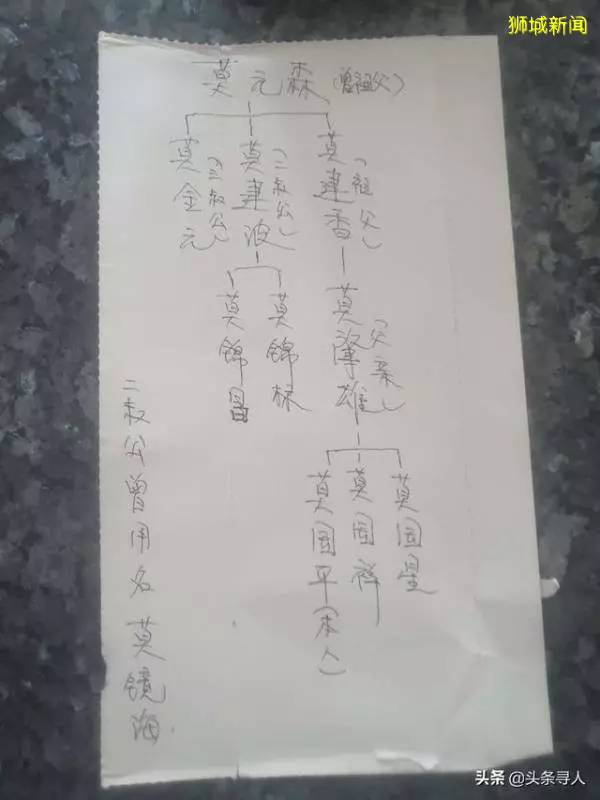 狮城新闻
莫元森(曾祖父)
莫建香(祖父)
莫建波(二叔公)
莫金元(三叔公)
莫
雄(父亲)
莫锦标
莫锦昌
莫国星
莫国祥
莫国平(本人)
二叔公曾用名莫镜海
头条 @头条寻人